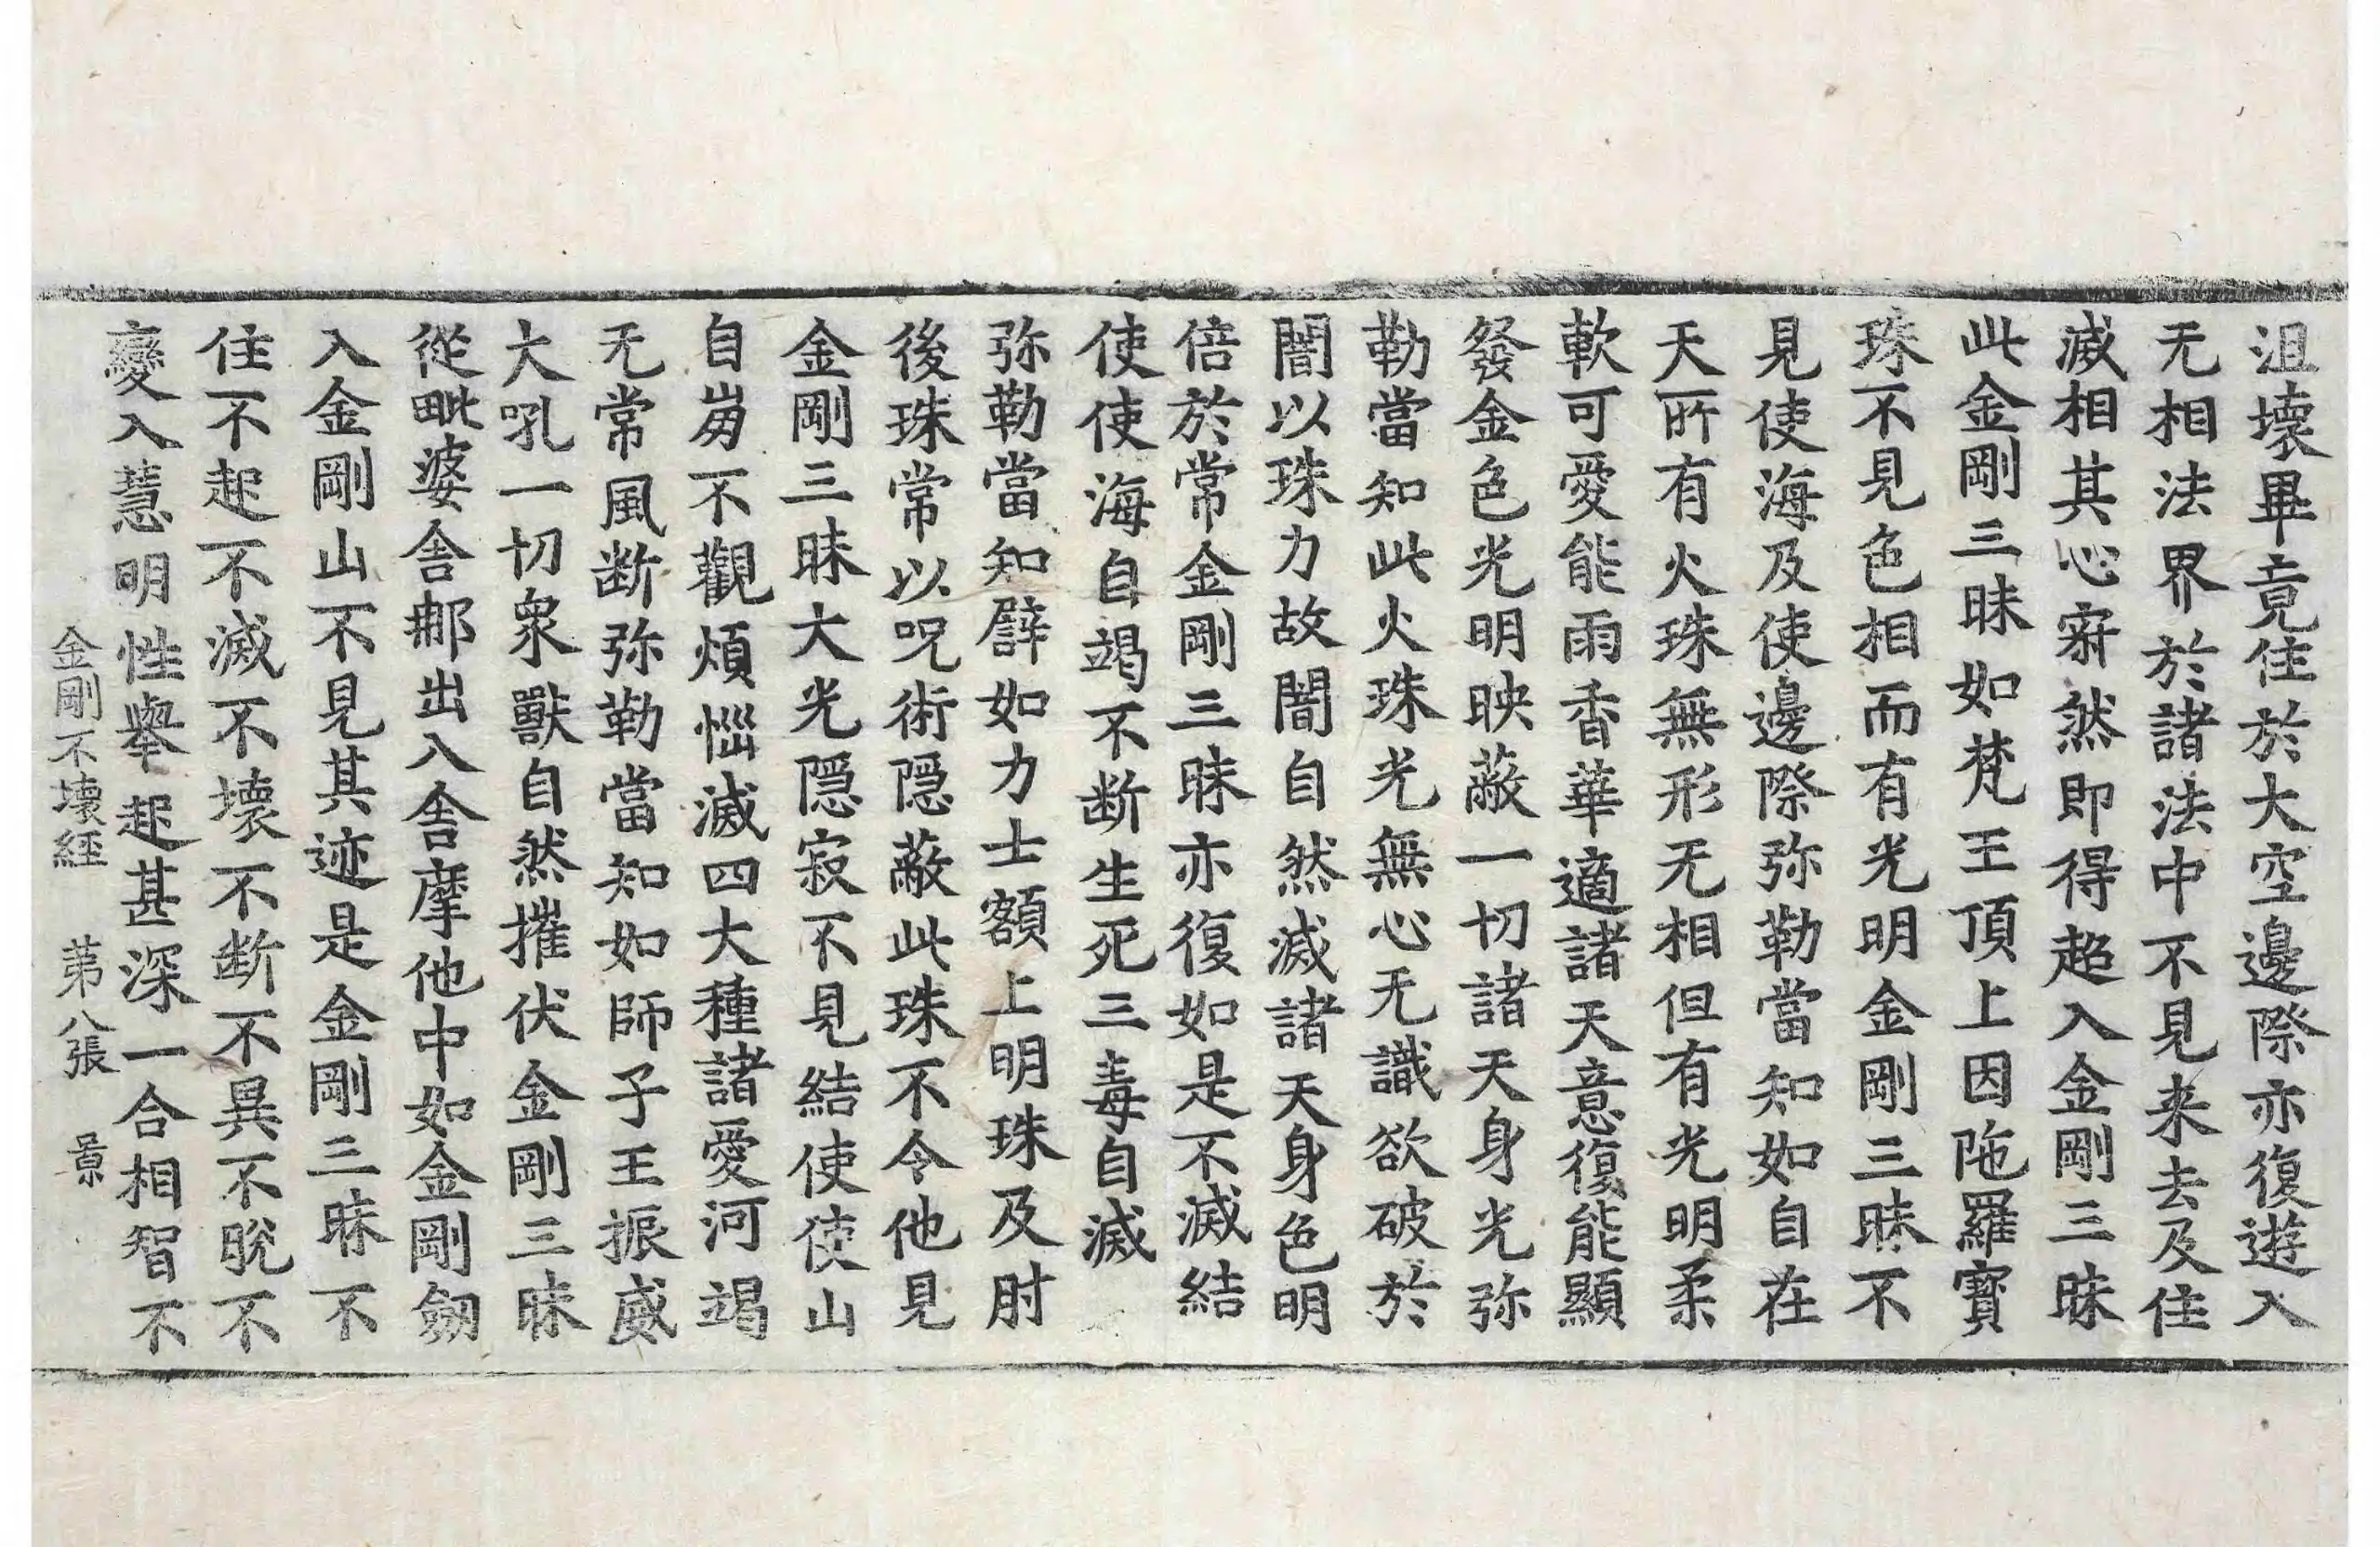 沮壞畢竟住於大空邊際亦復遊入
无相法界於諸法中不見来去及住
滅相其心寂然即得超入金剛三昧
此金剛三昧如梵王頂上因陁羅寶
珠不見色相而有光明金剛三昧不
見使海及使邊際弥勒當知如自在
天所有火珠無形无相但有光明柔
軟可愛能雨香華適諸天意復能顯
發金色光明映蔽一切諸天身光弥
勒當知此火珠光無心无識欲破於
闇以珠力故闇自然滅諸天身色明
倍於常金剛三昧亦復如是不滅結
使使海自竭不断生死三毒自滅
弥勒當知譬如力士額上明珠及肘
後珠常以呪術隠蔽此珠不令他見
金剛三昧大光隠寂不見結使使山
自崩不觀煩惱滅四大種諸愛河竭
无常風断弥勒當知如師子王振威
大吼一切衆獸自然摧伏金剛三昧
從毗婆舍那出入舍摩他中如金剛劒
入金剛山不見其迹是金剛三昧不
住不起不滅不壞不断不異不脱不
變入慧明性舉起甚深一合相智不
金剛不壞經 苐八張 景